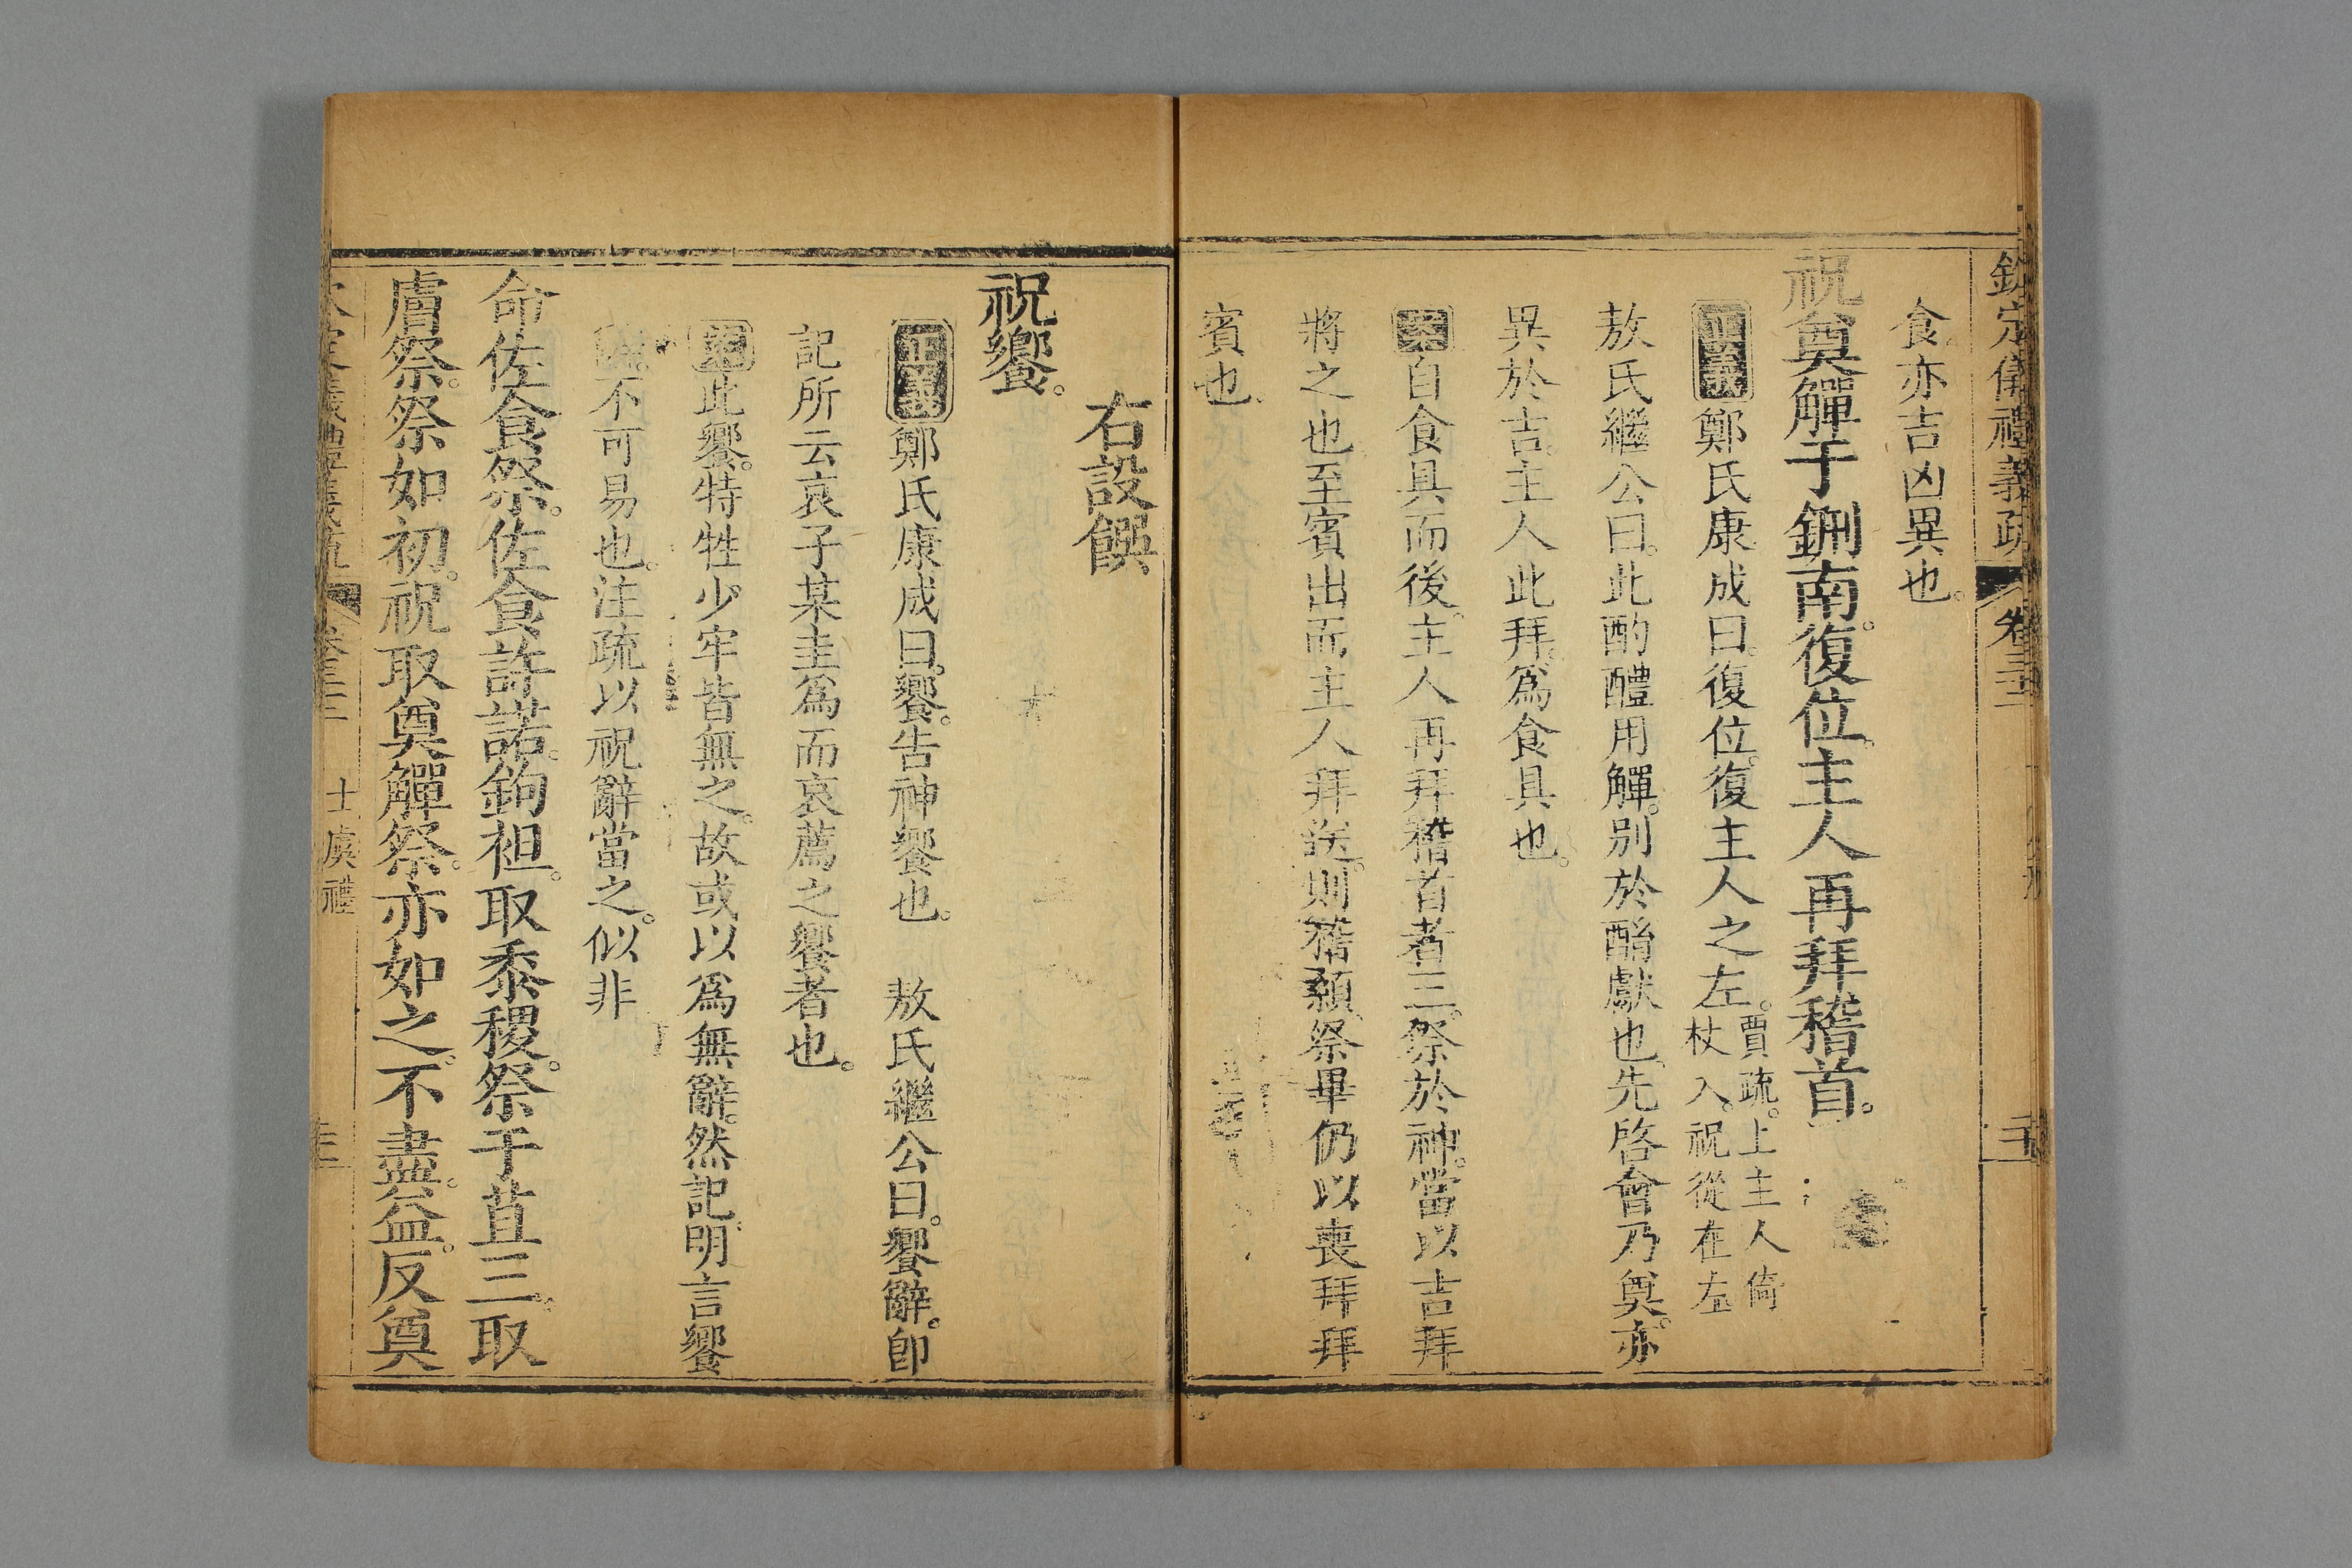 欽定儀禮義疏 卷三十三
食亦吉凶異也。
祝奠觶于鉶南。復位。主人再拜稽首。
正義鄭氏康成曰。復位。復主人之左。賈疏。上主人倚
杖入。祝從在左
敖氏繼公曰。此酌醴用觶。別於酳獻也。先啓會乃奠。亦
異於吉。主人此拜。爲食具也。
案自食具而後。主人再拜稽首者三。祭於神。當以吉拜
將之也至賓出而主人拜送。則稽顙。祭畢仍以喪拜拜
賓也。
右設饌
祝饗。
正義鄭氏康成曰。饗。告神饗也。 敖氏繼公曰。饗辭。卽
記所云哀子某圭爲而哀薦之饗者也。
案此饗。特牲少牢皆無之。故或以爲無辭。然記明言饗
辭。不可易也。注疏以祝辭當之。似非
命佐食祭。佐食許諾。鉤袒。取黍稷。祭于苴三。取
膚祭。祭如初。祝取奠觶祭。亦如之。不盡。益。反奠
欽定儀禮義疏 卷三十三 士虞禮